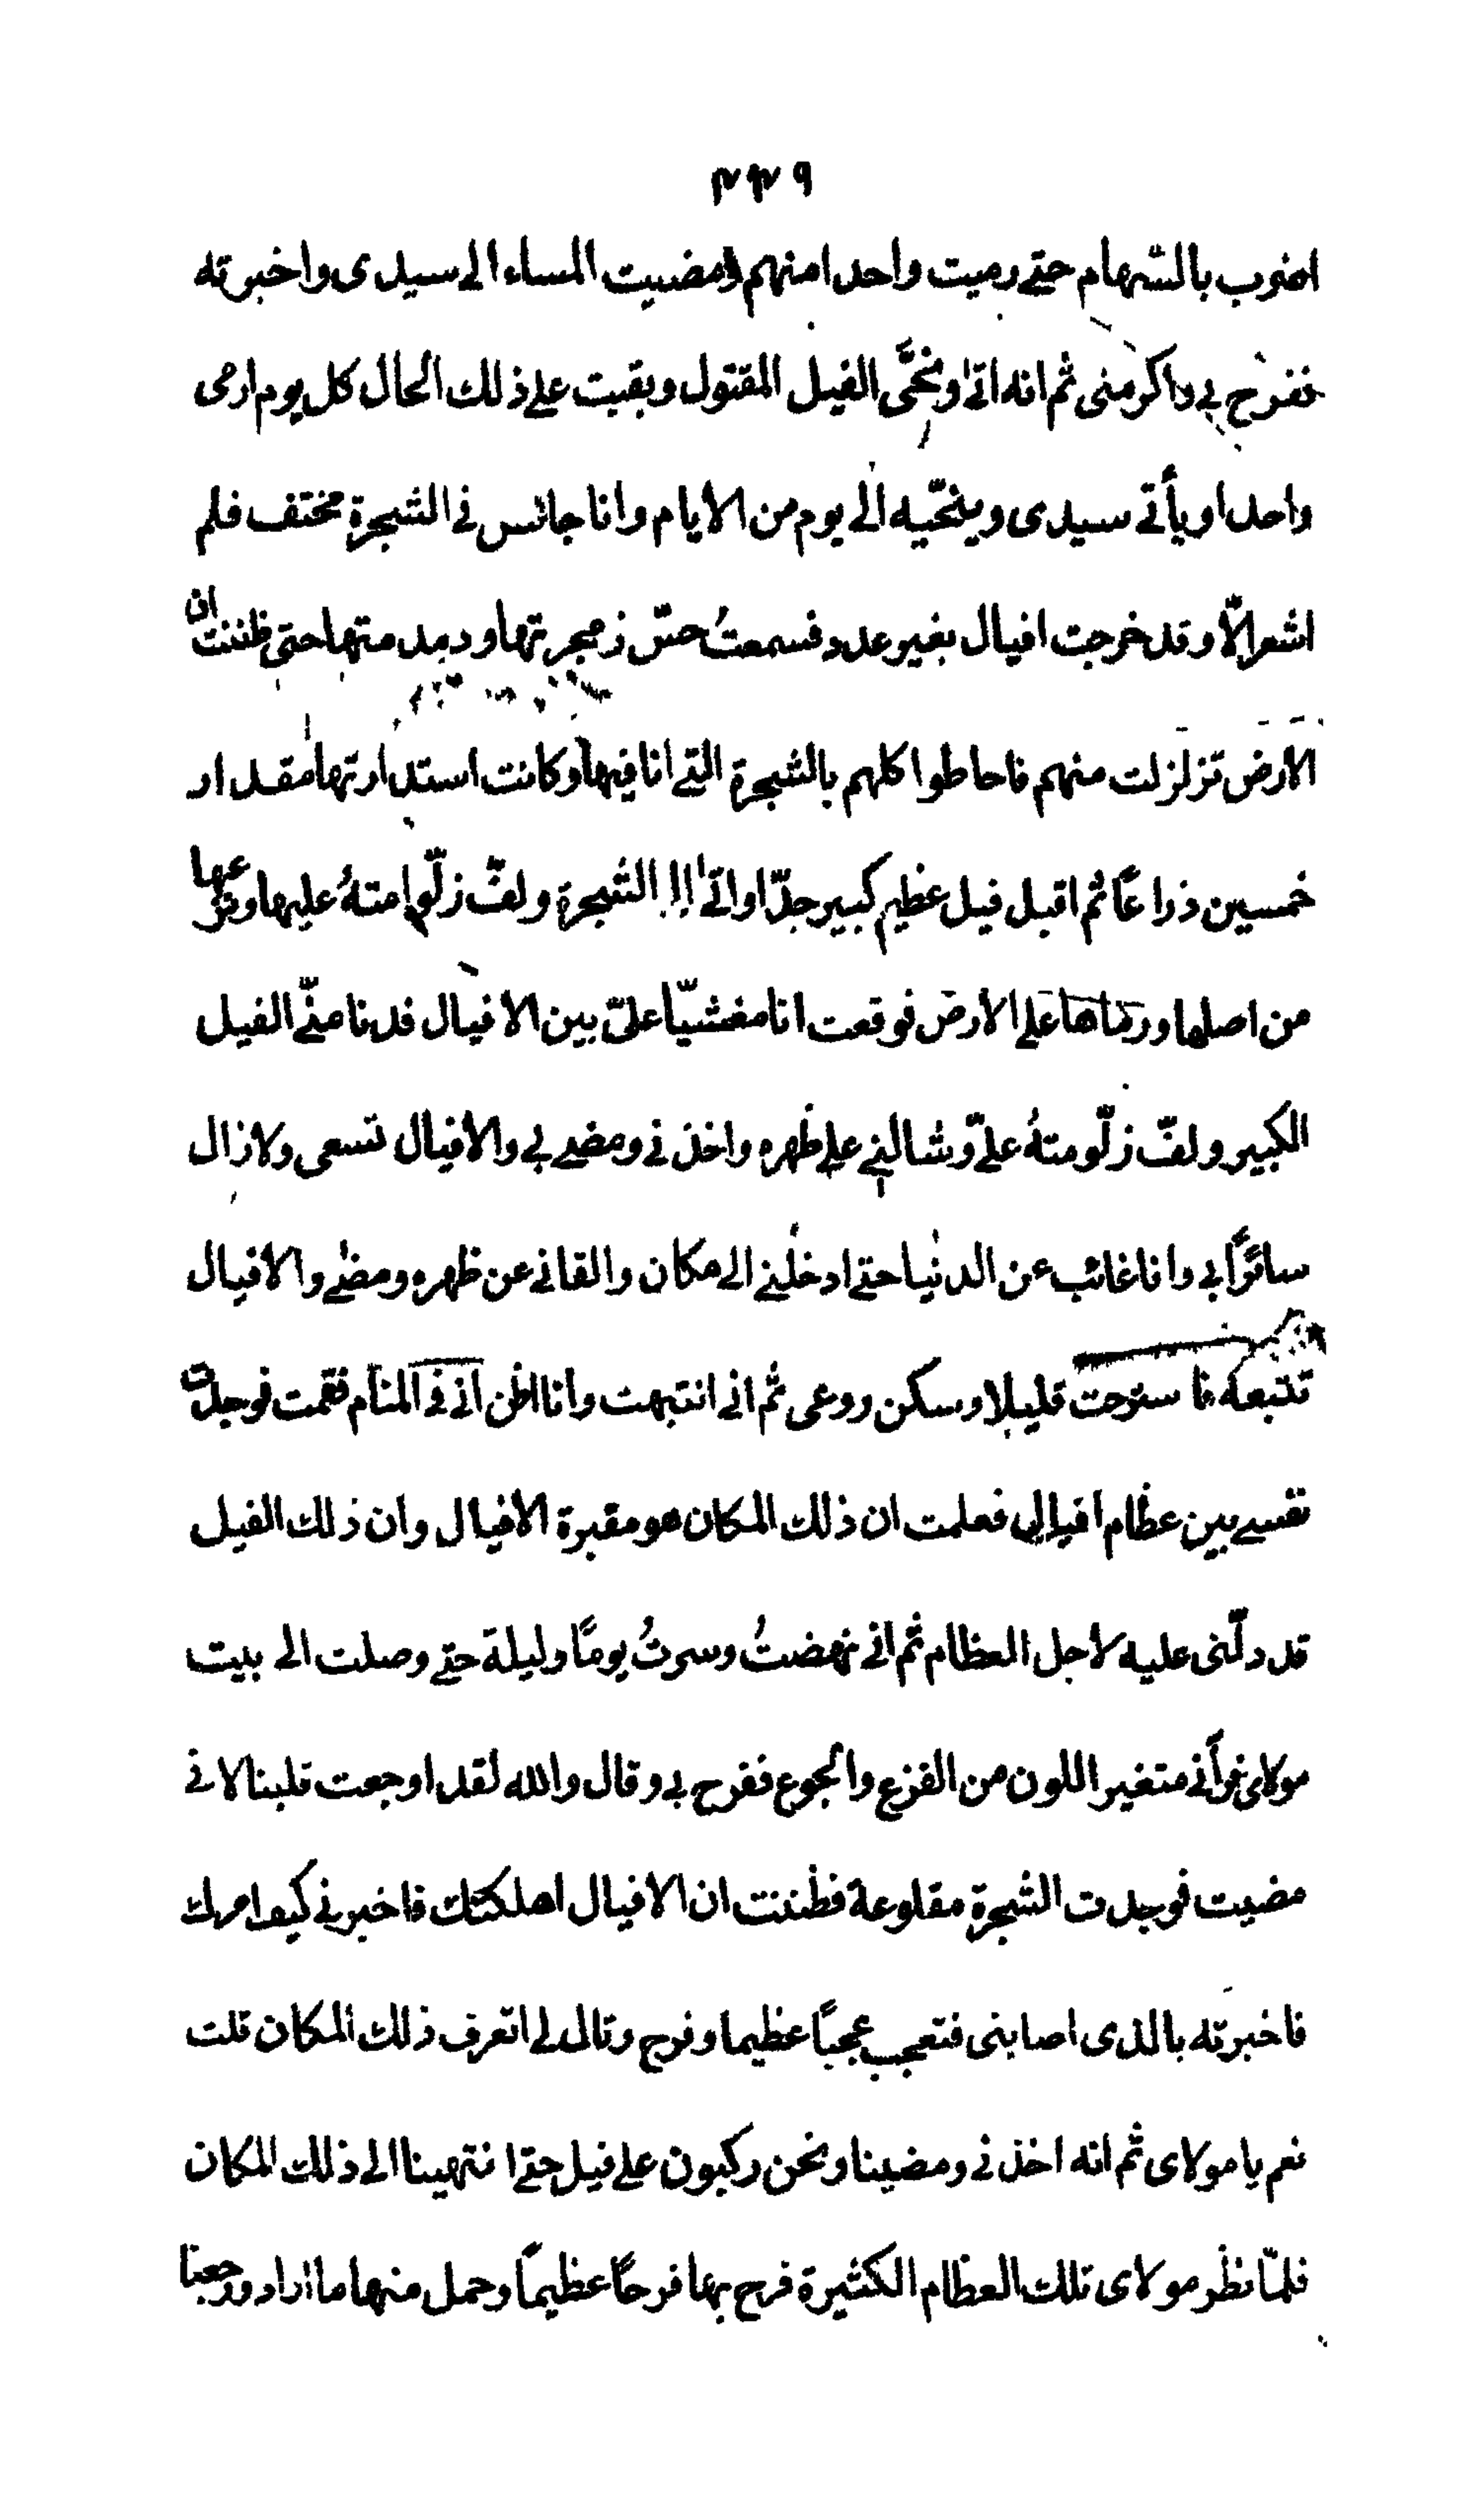 ٩٣٣
اضرب بالسهام حتى رميت واحدا منهم ومضيت المساء الى سيدى واخبرته
ففرح بي واكرمنى ثم انه اتى ونحّى الفيل المقتول وبقيت على ذلك الحال كل يوم ارمى
واحدا ويأتي سيدى وينحّيه الى يوم من الايام وانا جالس في الشجرة مختف فلم
اشعر الّا وقد خرجت افيال بغير عدد فسمعتُ حسّ زمجرتها ودمدمتها حتى ظننت ان
الارض تزلزلت منهم فاحاطوا كلهم بالشجرة التي انا فيها وكانت استدارتها مقدار
خمسين ذراعًا ثم اقبل فيل عظيم كبير جدّا واتى الى الشجرة ولفّ زلّومتهُ عليها
من اصلها ورماها على الارض فوقعت انا مغشيّا عليّ بين الافيال فدنا منّي الفيل
الكبير ولفّ زلّومتهُ عليّ وشالني على ظهره واخذني ومضى بي والافيال تسعى ولازال
سائرًا بي وانا غائب عن الدنيا حتى ادخلني الى مكان والقاني عن ظهره ومضى والافيال
تتبعه فاسترحت قليلا وسكن روعى ثم اني انتبهت وانا اظن اني في المنام فقمت فوجدت
نفسي بين عظام افيال فعلمت ان ذلك المكان هو مقبرة الافيال وان ذلك الفيل
قد دلّنى عليه لاجل العظام ثم اني نهضتُ وسرتُ يومًا وليلة حتى وصلت الى بيت
مولاى فرآني متغير اللون من الفزع والجوع ففرح بي وقال والله لقد اوجعت قلبنا لاني
مضيت فوجدت الشجرة مقلوعة فظننت ان الافيال اهلكتك فاخبرني كيف امرك
فاخبرته بالذى اصابنى فتعجب عجبًا عظيما وفرح وقال لي اتعرف ذلك المكان قلت
نعم يا مولاى ثم انه اخذني ومضينا ونحن ركبون على فيل حتى انتهينا الى ذلك المكان
فلمّا نظر مولاى تلك العظام الكثيرة فرح بها فرحًا عظيمًا وحمل منها ما اراد ورجعنا